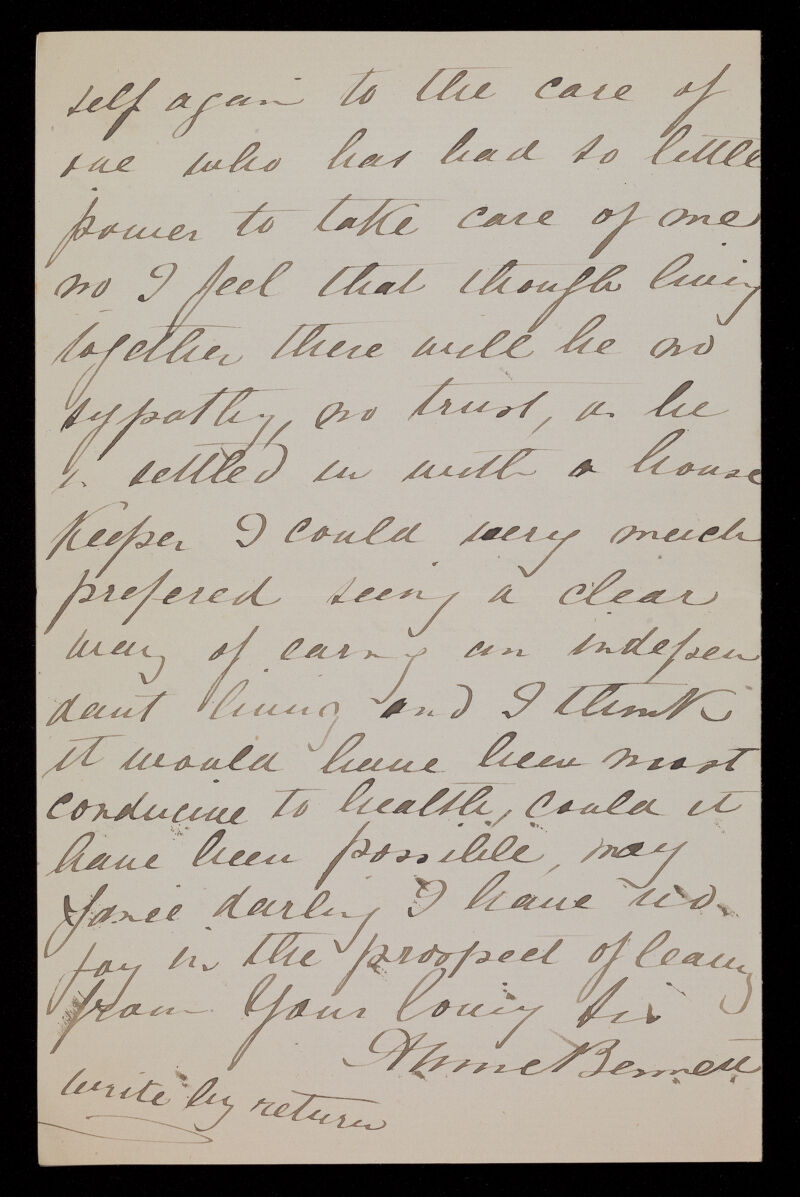 self again to the care of
one who has had so little
power to take care of me
no I feel that though living
together there will be no
sypathy, no trust, as he
is settled in with a house
Keeper I could very much
prefered seeing a clear
way of earng an indepen
dant living and I think
it would have been most
conducive to health, could it
have been possible, may
darling I have no
joy in the prospect of leaving
from Your loving Sis
Anne Bennett
write by return